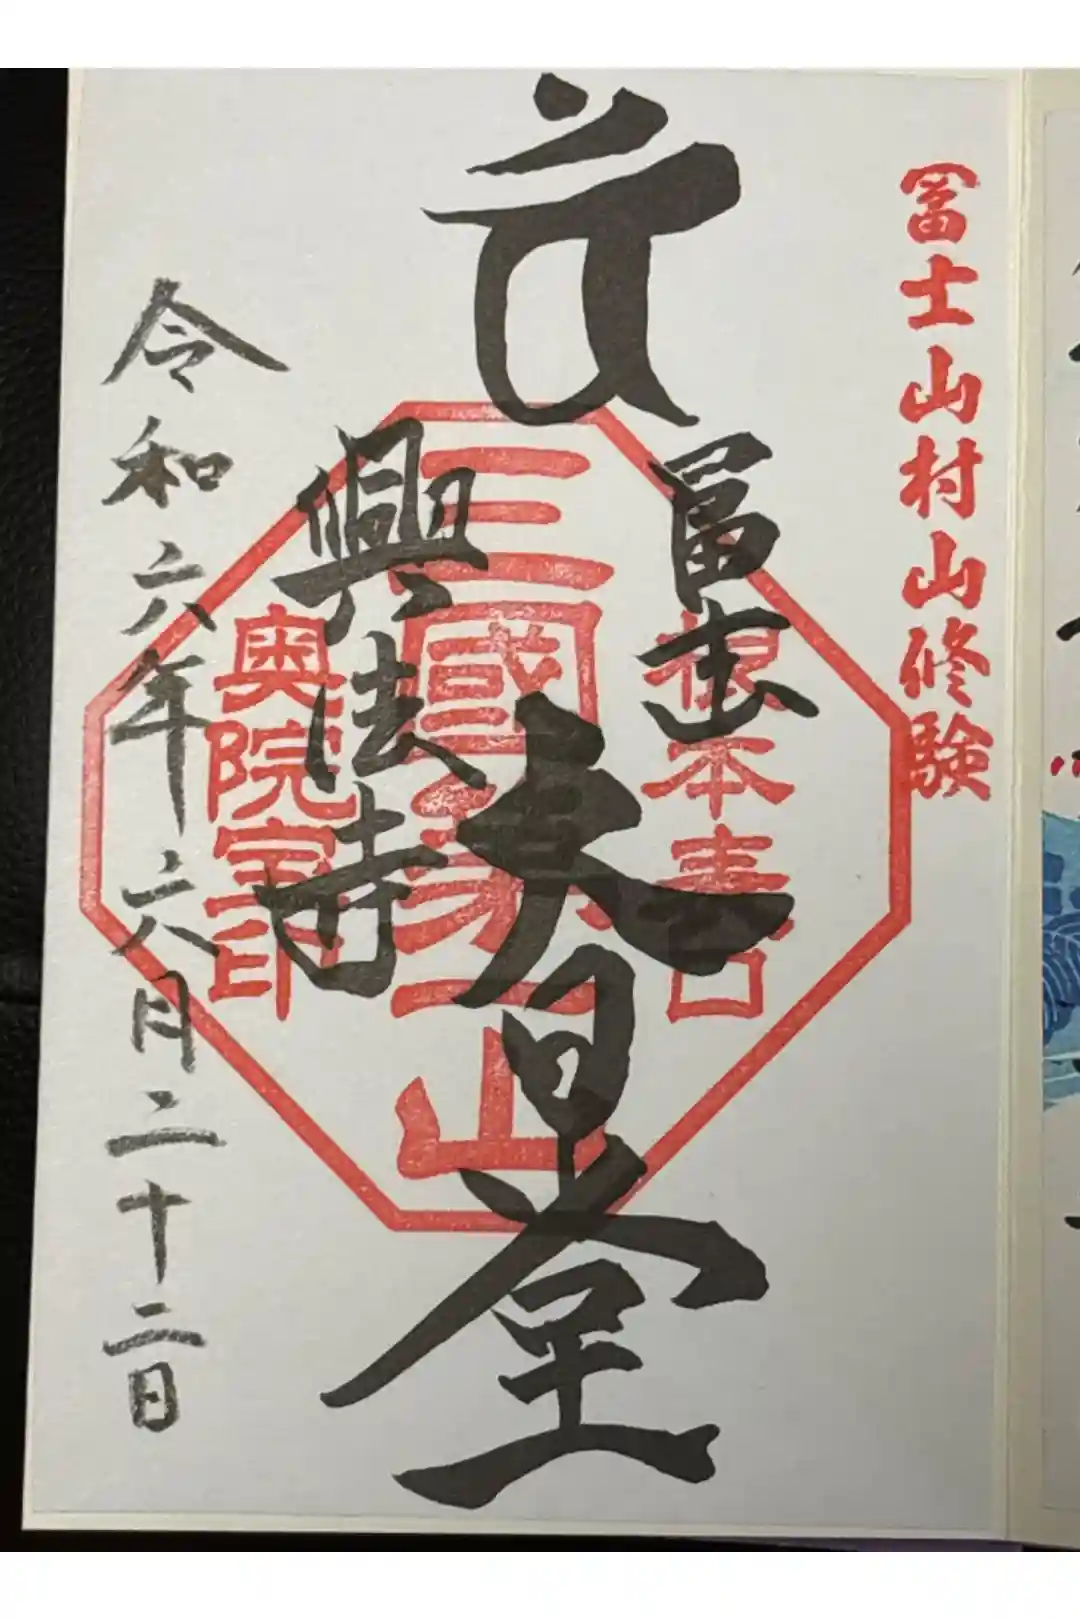 冨士山村山修験
冨士
大日堂
興法寺
根本
三國第一山
奥院宝印
令和六年六月二十二日